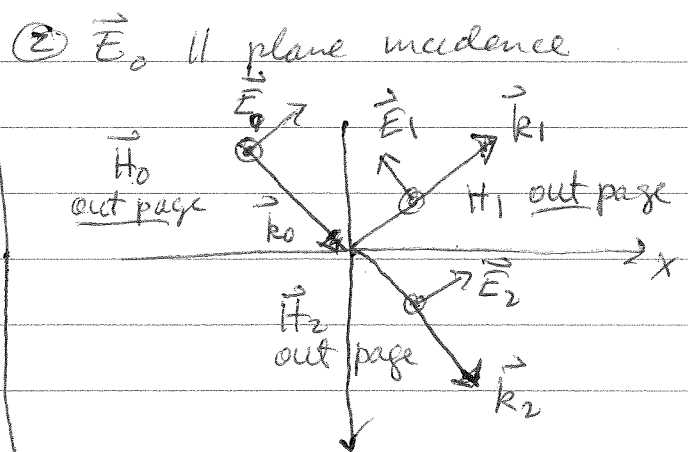 ② E⃗₀ || plane incidence
E⃗₀
E⃗₁
k⃗₁
H⃗₀
out page
H₁ out page
k⃗₀
x
E⃗₂
H⃗₂
out page
k⃗₂